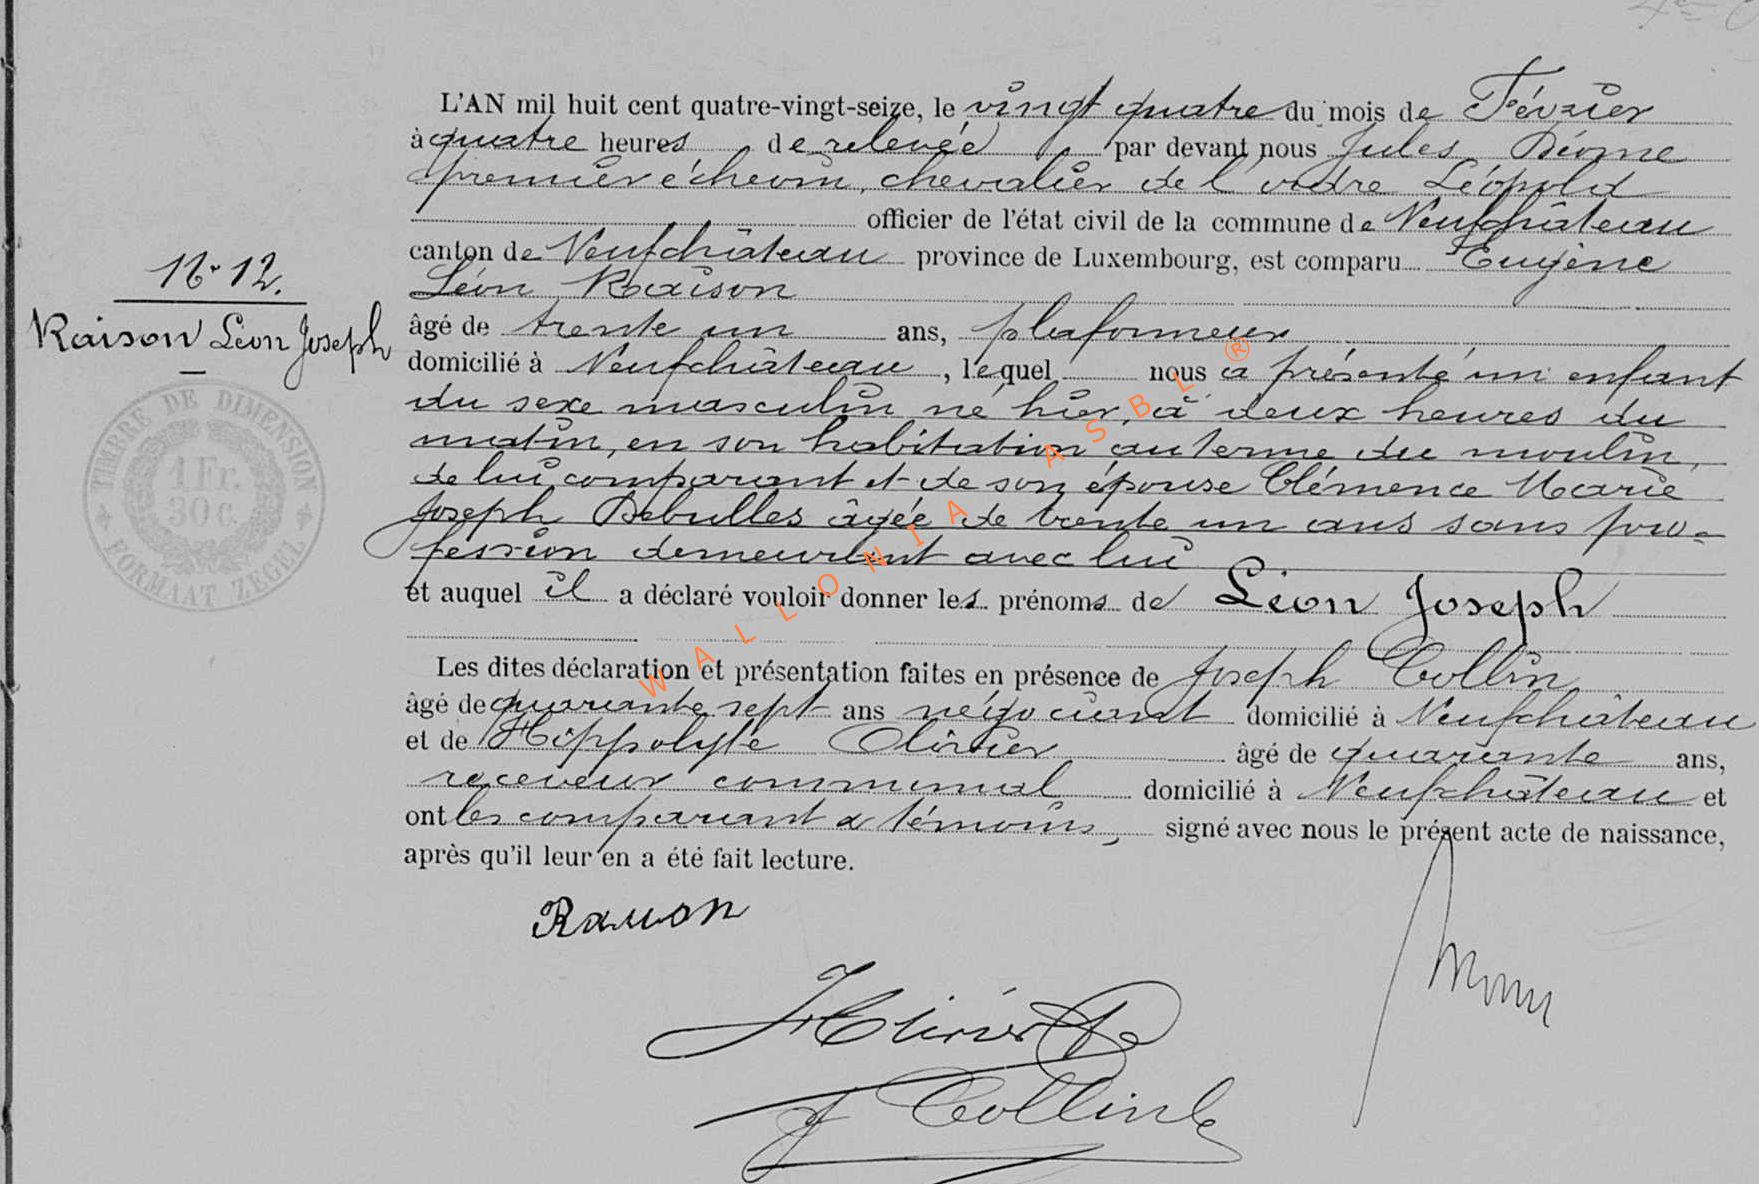 L'AN mil huit cent quatre-vingt-seize, le vingt quatre du mois de Février
à quatre heures de relevée par devant nous Jules Diome
premier échevin, chevalier de l'ordre Léopold
officier de l'état civil de la commune de Neufchâteau
canton de Neufchâteau province de Luxembourg, est comparu Eugène
Léon Raison
N° 12.
Raison Léon Joseph
âgé de trente un ans, plafonneur
domicilié à Neufchâteau, lequel nous a présenté un enfant
du sexe masculin né hier, à deux heures du
matin, en son habitation au terme du moulin,
de lui comparant et de son épouse Clémence Marie
Joseph Debulles âgée de trente un ans sans pro-
fession demeurant avec lui
et auquel il a déclaré vouloir donner les prénoms de Léon Joseph
TIMBRE DE DIMENSION
1 Fr.
30 c.
FORMAAT ZEGEL
WALLONIA ASBL ®
Les dites déclaration et présentation faites en présence de Joseph Collin
âgé de quarante sept ans négociant domicilié à Neufchâteau
et de Hippolyte Olivier âgé de quarante ans,
receveur communal domicilié à Neufchâteau et
ont les comparant & témoins, signé avec nous le présent acte de naissance,
après qu'il leur en a été fait lecture.
Raison
HOlivier
J Collin